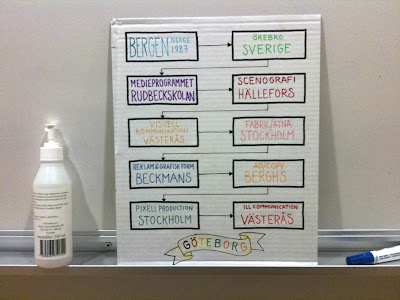 BERGEN NORGE
1987
ÖREBRO
SVERIGE
MEDIEPROGRAMMET
RUDBECKSKOLAN
SCENOGRAFI
HÄLLEFORS
VISUELL
KOMMUNIKATION
VÄSTERÅS
FABRIC/ATNA
STOCKHOLM
REKLAM & GRAFISK FORM
BECKMANS
AD/COPY
BERGHS
PIXELL PRODUCTION
STOCKHOLM
ILL COMMUNICATION
VÄSTERÅS
GÖTEBORG